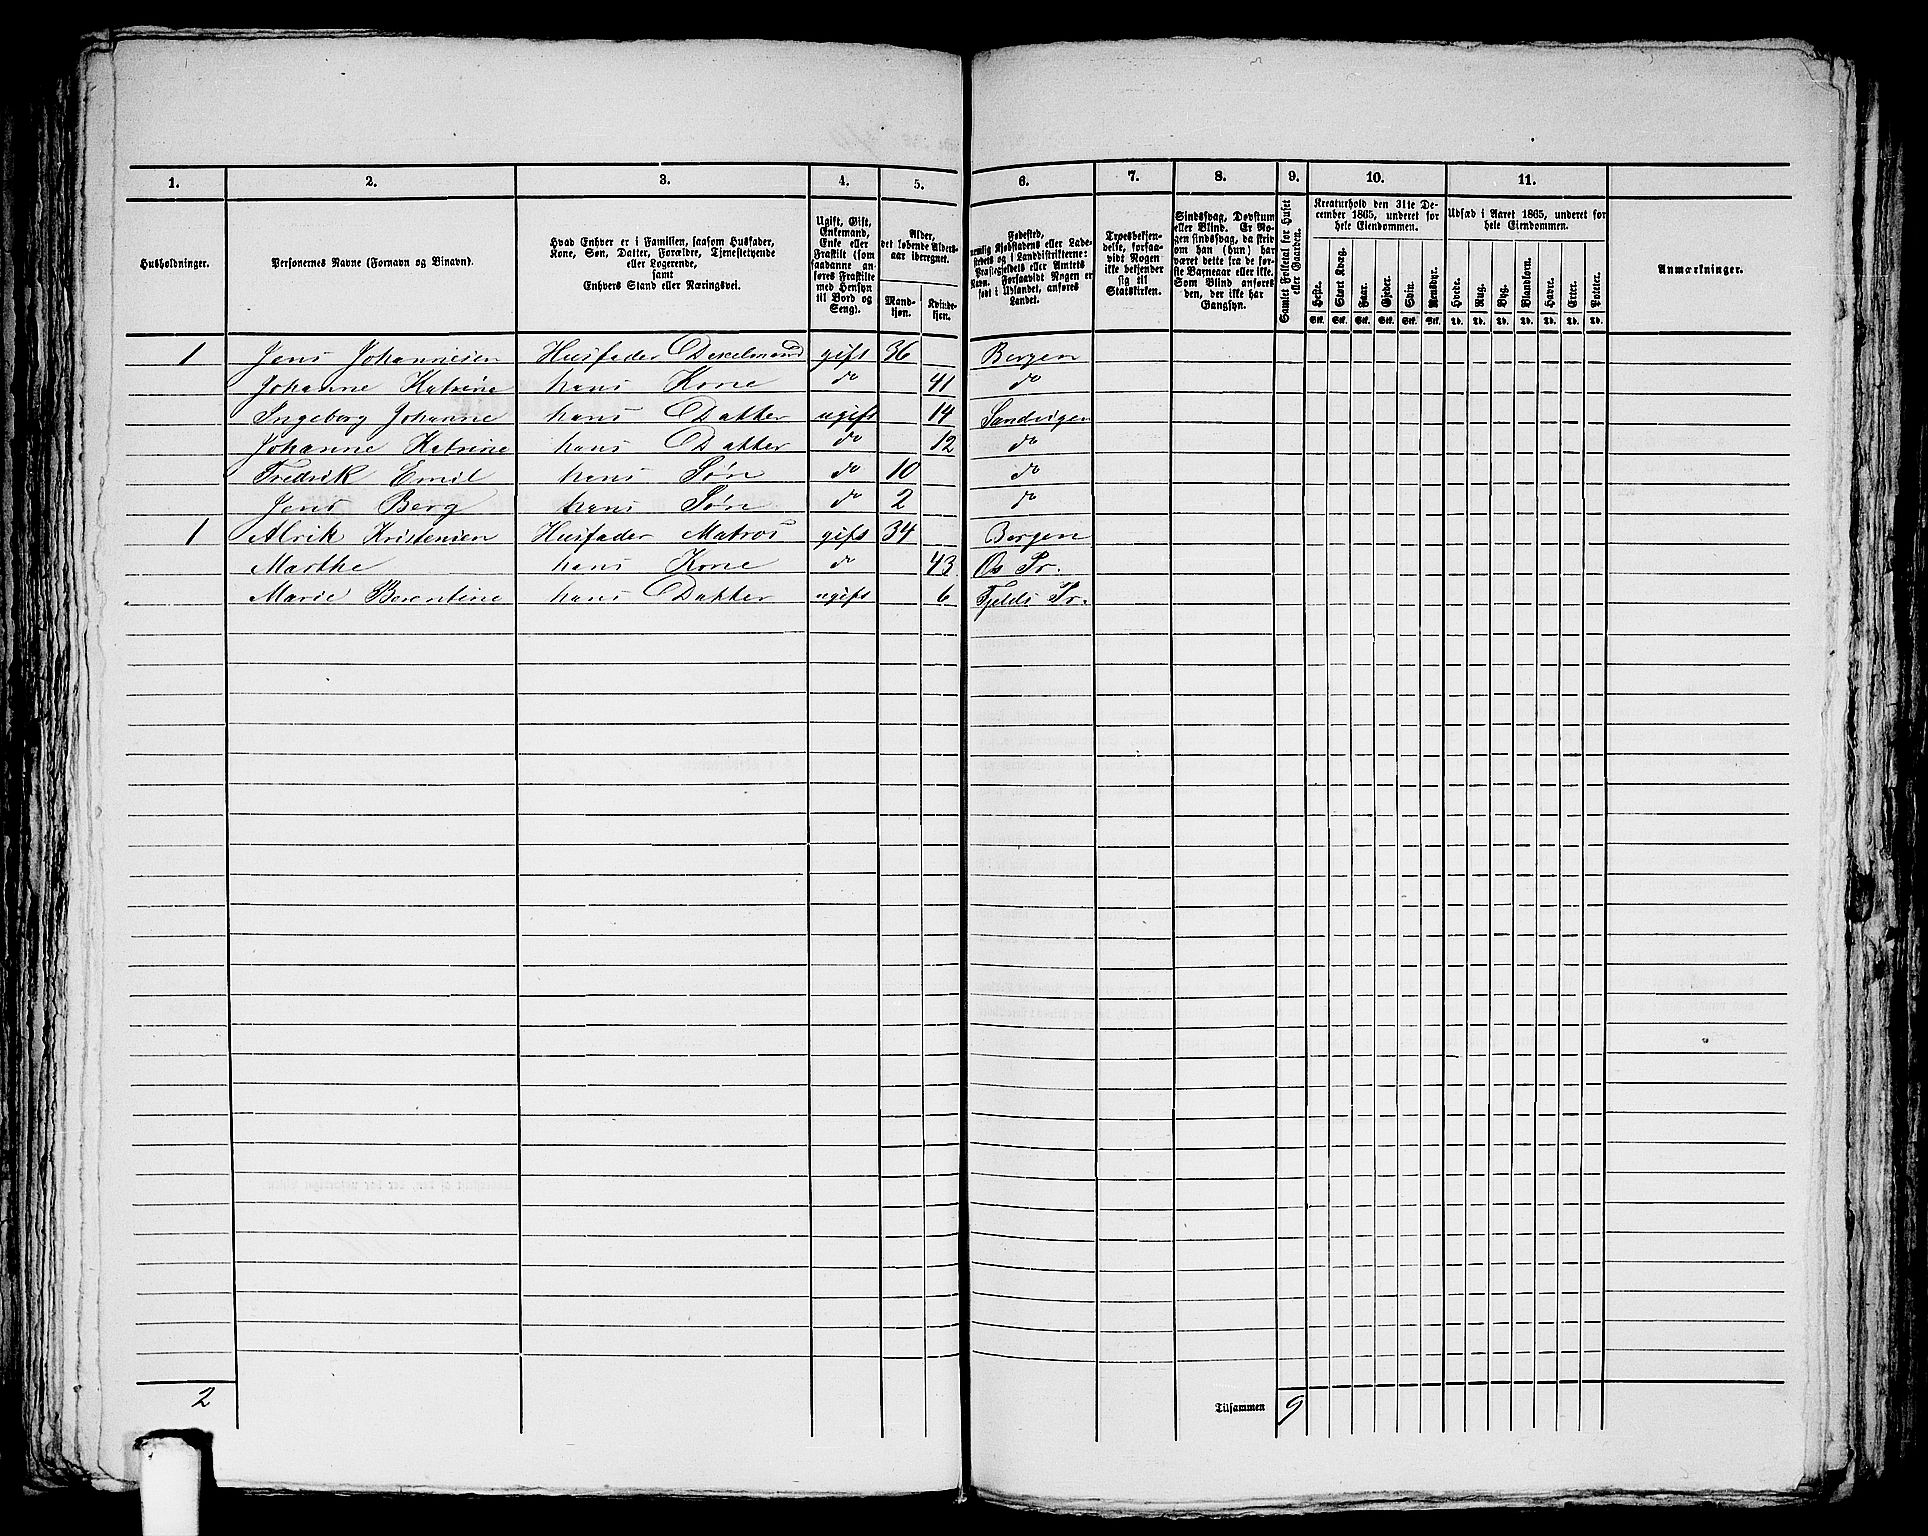 1. 2. 3. 4. 5. 6. 7. 8. 9. 10. 11.
Husholdninger.
Personernes Navne (Fornavn og Binavn).
Hvad Enhver er i Familien, saasom Husfader,
Kone, Søn, Datter, Forældre, Tjenestetyende
eller Logerende,
samt
Enhvers Stand eller Næringsvei.
Ugift, Gift,
Enkemand,
Enke eller
Fraskilt (som
saadanne an-
føres Fraskilte
med Hensyn
til Bord og
Seng).
Alder,
det løbende Alders-
aar iberegnet.
Mand-
kjøn.
Kvinde-
kjøn.
Fødested,
nemlig Kjøbstadens eller Lade-
stedets og i Landdistrikterne:
Præstegjeldets eller Amtets
Navn. Forsaavidt Nogen er
født i Udlandet, anføres
Landet.
Troesbekjen-
delse, forsaa-
vidt Nogen
ikke bekjender
sig til
Statskirken.
Sindssvag, Døvstum
eller Blind. Er No-
gen sindssvag, da skriv
om han (hun) har
været dette fra de før-
ste Barneaar eller ikke.
Som Blind anføres
den, der ikke har
Gangsyn.
Samlet Folketal for Huset
eller Gaarden.
Kreaturhold den 31te De-
cember 1865, underet for
hele Eiendommen.
Heste. Stort Kvæg. Faar. Gjeder. Svin. Rensdyr.
Stk. Stk. Stk. Stk. Stk. Stk.
Udsæd i Aaret 1865, underet for
hele Eiendommen.
Hvede. Rug. Byg. Blandkorn. Havre. Erter. Poteter.
Td. Td. Td. Td. Td. Td. Td.
Anmærkninger.
1 Jens Johannesen Husfader Dexelmand gift 36 Bergen
Johanne Katrine hans Kone do 41 do
Ingeborg Johanne hans Datter ugift 14 Sandvigen
Johanne Katrine hans Datter do 12 do
Fredrik Emil hans Søn do 10 do
Jens Berg hans Søn do 2 do
1 Alrik Kristensen Husfader Matros gift 34 Bergen
Marthe hans Kone do 43 Os Pr.
Marie Berentine hans Datter ugift 6 Fjelds Pr.
2 Tilsammen 9